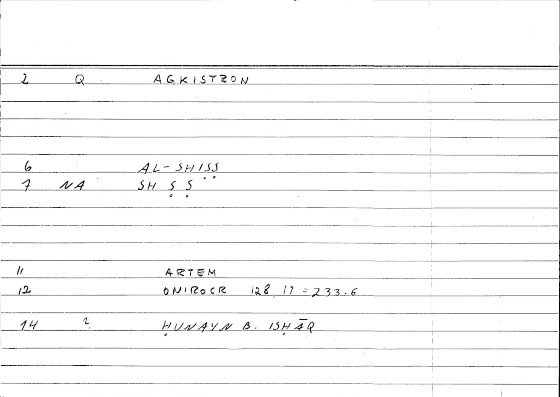 2 Q AGKISTRON
6 AL-SHIṢṢ
7 NA SH Ṣ Ṣ
11 ARTEM
12 ONIROCR 128,17 = 233.6
14 ? ḤUNAYN B. ISḤĀQ